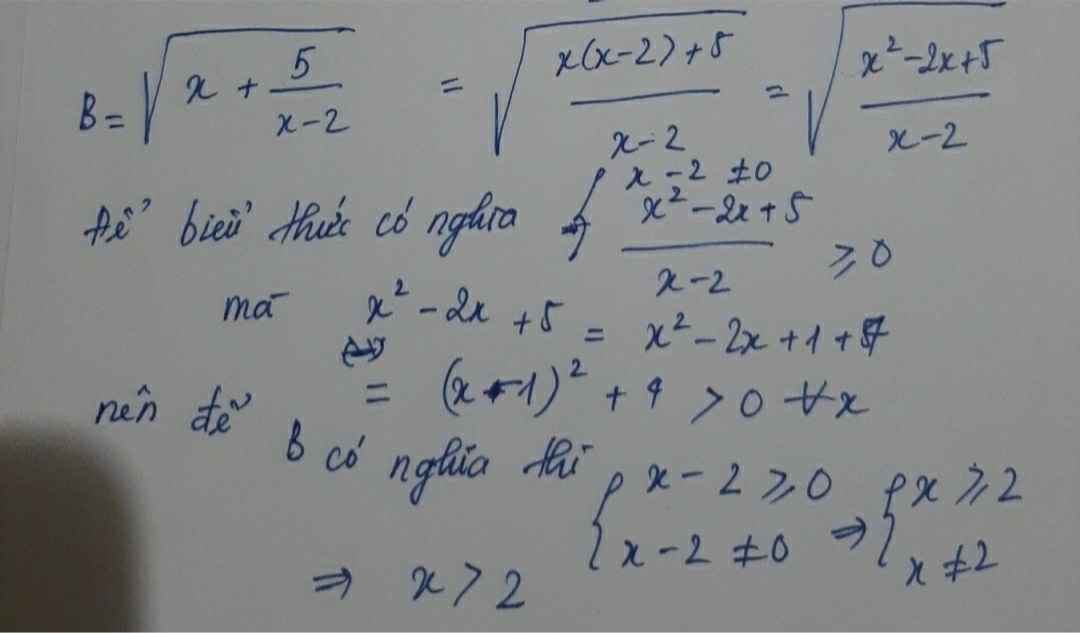 B = √(x + 5/(x-2)) = √((x(x-2)+5)/(x-2)) = √((x²-2x+5)/(x-2))
để biểu thức có nghĩa ⇒ { x-2 ≠0
(x²-2x+5)/(x-2) ≥ 0
mà x² - 2x + 5 = x² - 2x + 1 + 4
= (x-1)² + 4 > 0 ∀x
nên để B có nghĩa thì { x - 2 ≥ 0 ⇒ { x ≥ 2
x - 2 ≠ 0 x ≠ 2
⇒ x > 2